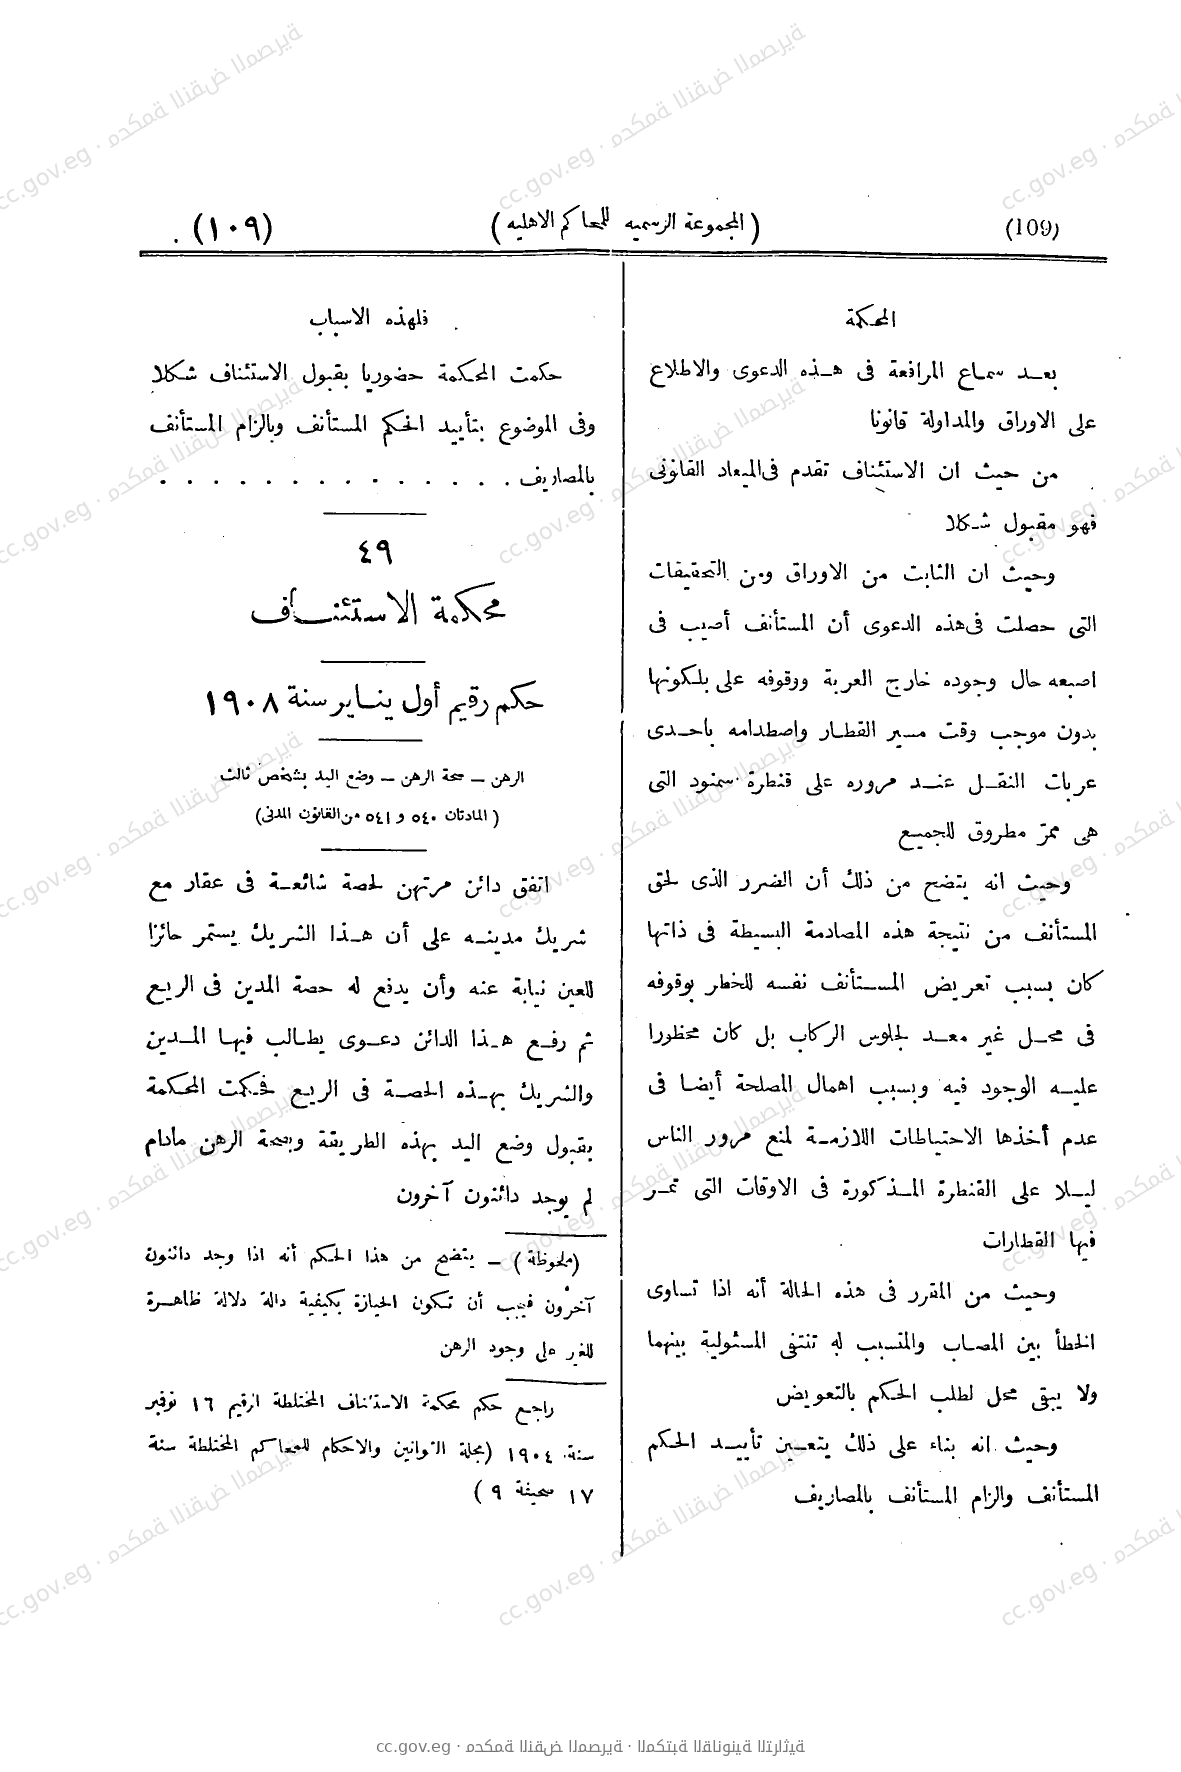 (109) (المجموعة الرسميه للمحاكم الاهليه) (١٠٩)
المحكمة
بعد سماع المرافعة فى هذه الدعوى والاطلاع
على الاوراق والمداولة قانونا
من حيث ان الاستئناف تقدم فى الميعاد القانونى
فهو مقبول شكلا
وحيث ان الثابت من الاوراق ومن التحقيقات
التى حصلت فى هذه الدعوى أن المستأنف أصيب فى
اصبعه حال وجوده خارج العربة ووقوفه على بلكونها
بدون موجب وقت مسير القطار واصطدامه باحدى
عربات النقل عند مروره على قنطرة سمنود التى
هى ممرّ مطروق للجميع
وحيث انه يتضح من ذلك أن الضرر الذى لحق
المستأنف من نتيجة هذه المصادمة البسيطة فى ذاتها
كان بسبب تعريض المستأنف نفسه للخطر بوقوفه
فى محل غير معد لجلوس الركاب بل كان محظورا
عليه الوجود فيه وبسبب اهمال المصلحة أيضا فى
عدم أخذها الاحتياطات اللازمة لمنع مرور الناس
ليلا على القنطرة المذكورة فى الاوقات التى تمر
فيها القطارات
وحيث من المقرر فى هذه الحالة أنه اذا تساوى
الخطأ بين المصاب والمتسبب له تنتفى المسئولية بينهما
ولا يبقى محل لطلب الحكم بالتعويض
وحيث انه بناء على ذلك يتعين تأييد الحكم
المستأنف والزام المستأنف بالمصاريف
فلهذه الاسباب
حكمت المحكمة حضوريا بقبول الاستئناف شكلا
وفى الموضوع بتأييد الحكم المستأنف وبالزام المستأنف
بالمصاريف . . . . . . . . . . . . . .
٤٩
محكمة الاستئناف
حكم رقيم أول يناير سنة ١٩٠٨
الرهن – صحة الرهن – وضع اليد بشخص ثالث
(المادتان ٥٤٠ و ٥٤١ من القانون المدنى)
اتفق دائن مرتهن لحصة شائعة فى عقار مع
شريك مدينه على أن هذا الشريك يستمر حائزا
للعين نيابة عنه وأن يدفع له حصة المدين فى الريع
ثم رفع هذا الدائن دعوى يطالب فيها المدين
والشريك بهذه الحصة فى الريع فحكمت المحكمة
بقبول وضع اليد بهذه الطريقة وبصحة الرهن مادام
لم يوجد دائنون آخرون
(ملحوظة) – يتضح من هذا الحكم أنه اذا وجد دائنون
آخرون فيجب أن تكون الحيازة بكيفية دالة دلالة ظاهرة
للغير على وجود الرهن
راجع حكم محكمة الاستئناف المختلطة الرقيم ١٦ نوفمبر
سنة ١٩٠٤ (مجلة القوانين والاحكام للمحاكم المختلطة سنة
١٧ صحيفة ٩)
cc.gov.eg · محكمة النقض المصرية · المكتبة القانونية التراثية